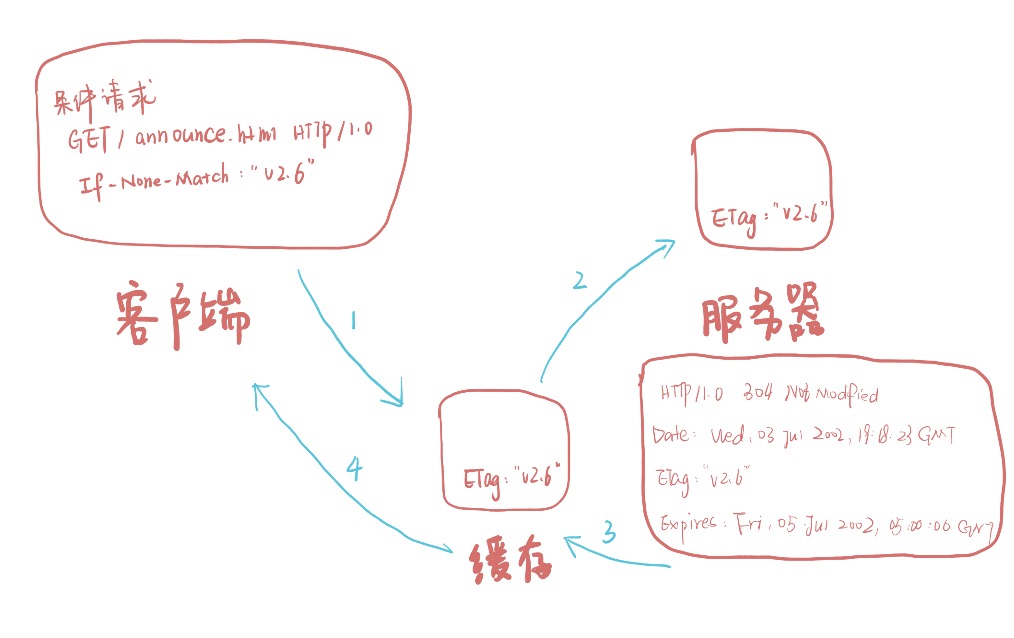 条件请求
GET / announce.html HTTP/1.0
If-None-Match: "v2.6"
客户端
1
2
ETag: "v2.6"
服务器
ETag: "v2.6"
缓存
4
3
HTTP/1.0 304 Not Modfied
Date: Wed, 03 Jul 2002, 19:18:23 GMT
ETag: "v2.6"
Expires: Fri, 05 Jul 2002, 05:00:06 GMT